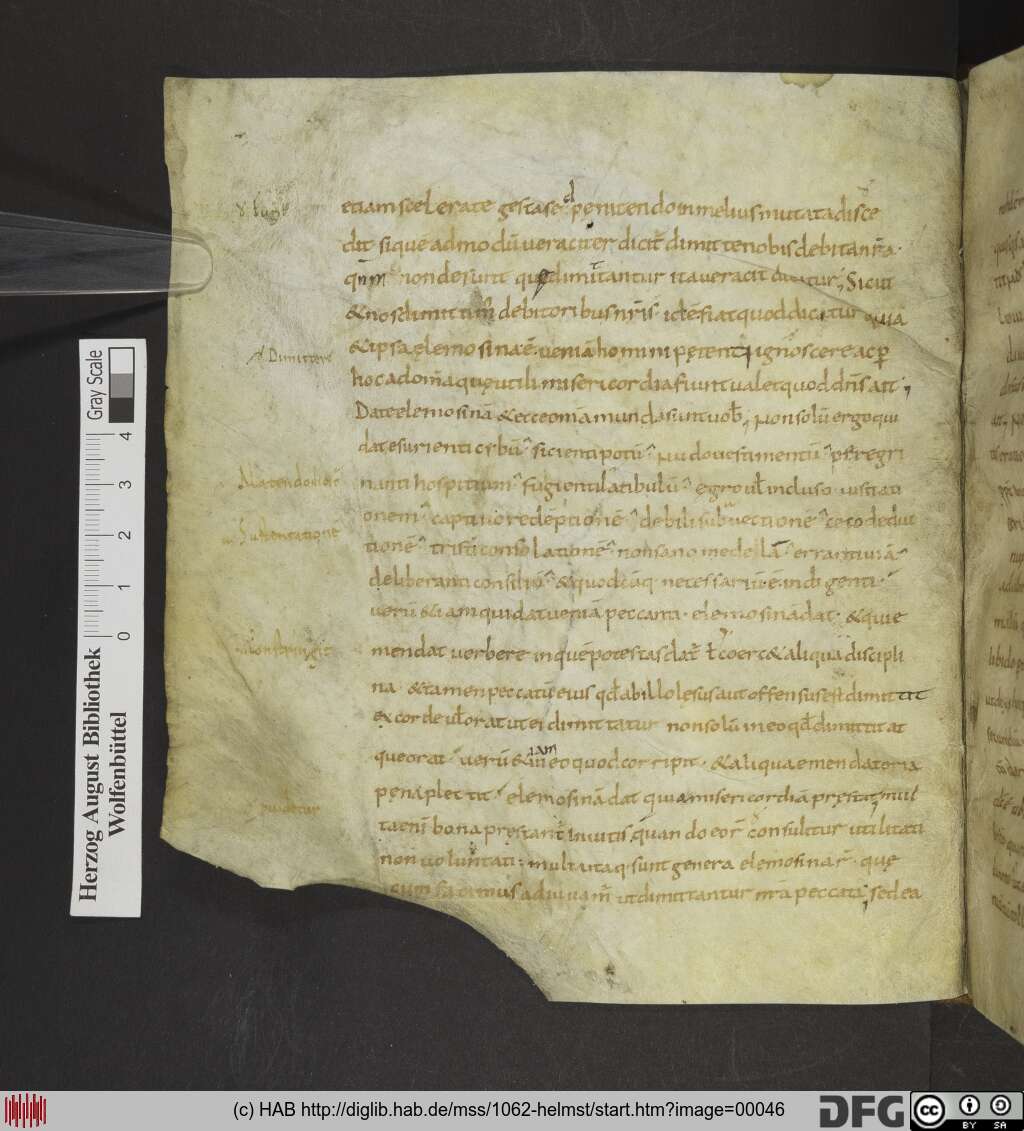 etiam scelerate gestas ee l pęnitendo in melius mutata disce
dit si quē ad modū veraciter dicit̄ dimitte nobis debita nr̄a·
qm̄ non desunt que dimittantur ita veracit̄ dicatur; Sicut
& nos dimittim̄ debitoribus nr̄is· id ē fiat quod dicatur quia
& ipsa elemosina ē. veniā homini pętenti ignoscere ac ꝑ
hoc ad om̄ia quę utili misericordia fiunt valet quod dn̄s ait;
Date elemosinā & ecce om̄ia munda sunt vob̄, Non solū ergo qui
dat esurienti cybū sicienti potū nudo vestimentū peregri
nanti hospitium fugienti latibulū egro vł incluso visitati
onem captivo redēptionē debili subvectionē cęco deduc
tionē tristi consolationē non sano medelā erranti viā
deliberanti consiliū & quod cūq· necessariū ē indigenti·
verū etiam qui dat veniā peccanti· elemosinā dat· & qui e
mendat verbere in quē potestas dat̄ ł coerc& aliqua discipli
na· & tamen peccatū eius qđ ab illo lesus aut offensus est dimittit
ex corde vł orat ut ei dimittatur non solū in eo qđ dimittit at
que orat verū & iam in eo quod corripit· & aliqua emendatoria
pęna plectit elemosinā dat quia misericordiā pręstat; mul
ta eni bona pręstant̄ invitis quando eor̄ consulitur utilitati
non voluntati· multa itaq· sunt genera elemosinar̄· quę
cum facimus adiuvam̄ ut dimittantur nr̄a peccata; sed ea
Dimittere
Sustentatione
Constringit
videtur
Gray Scale
0 1 2 3 4
Herzog August Bibliothek
Wolfenbüttel
(c) HAB http://diglib.hab.de/mss/1062-helmst/start.htm?image=00046
DFG
cc BY SA